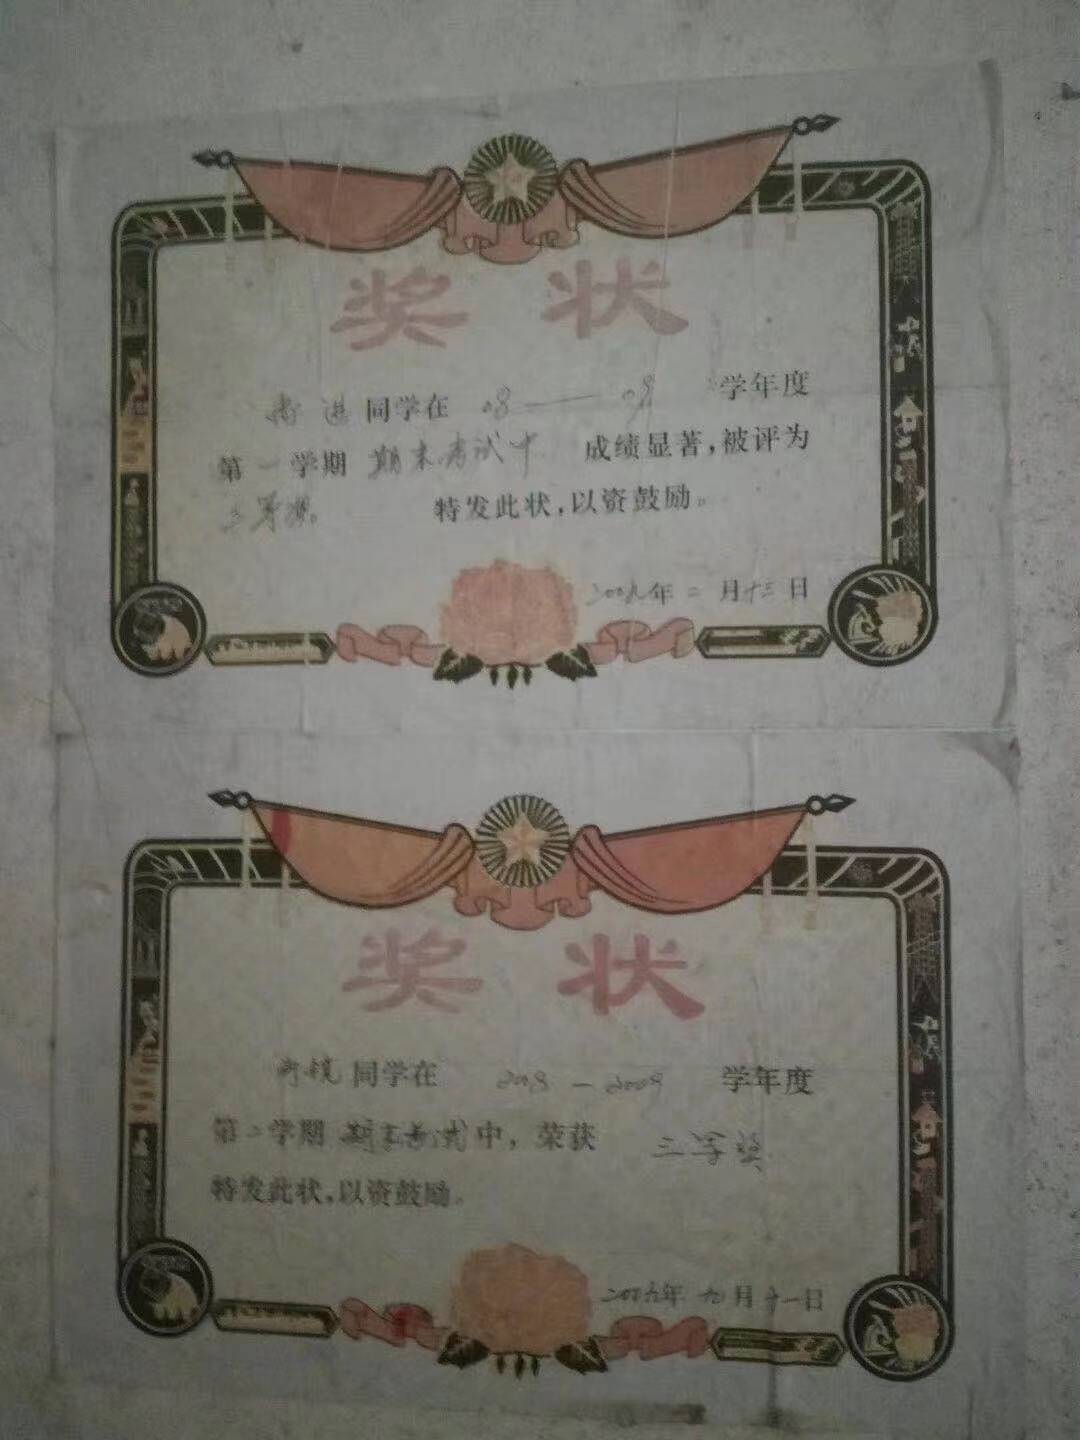 奖 状
同学在 08——09 学年度
第一学期 期末考试中 成绩显著，被评为
三等奖。 特发此状，以资鼓励。
二00九年 二 月十三日
奖 状
同学在 2008—2009 学年度
第二学期 期末考试中，荣获 三等奖
特发此状，以资鼓励。
二00九年 九 月十一日